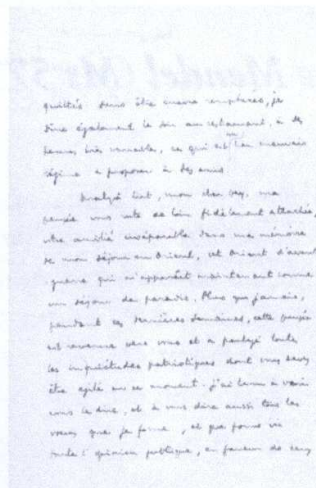 quittés sans être encore remplacés, je
dîne également le soir au restaurant, à des
heures très variable, ce qui est un mauvais
régime à proposer à des amis
Malgré tout, mon cher bey, ma
pensée vous reste de loin fidèlement attachée,
votre amitié inséparable dans ma mémoire
de mon séjour en Orient, cet Orient d'avant
guerre qui m'apparaît maintenant comme
un séjour de paradis. Plus que jamais,
pendant ces dernières semaines, cette pensée
est revenue vers vous et a partagé toutes
les inquiétudes patriotiques dont vous devez
être agité en ce moment. j'ai tenu à venir
vous le dire, et à vous dire aussi tous les
vœux que je forme, et que forme ici
toute l'opinion publique, en faveur de ceux